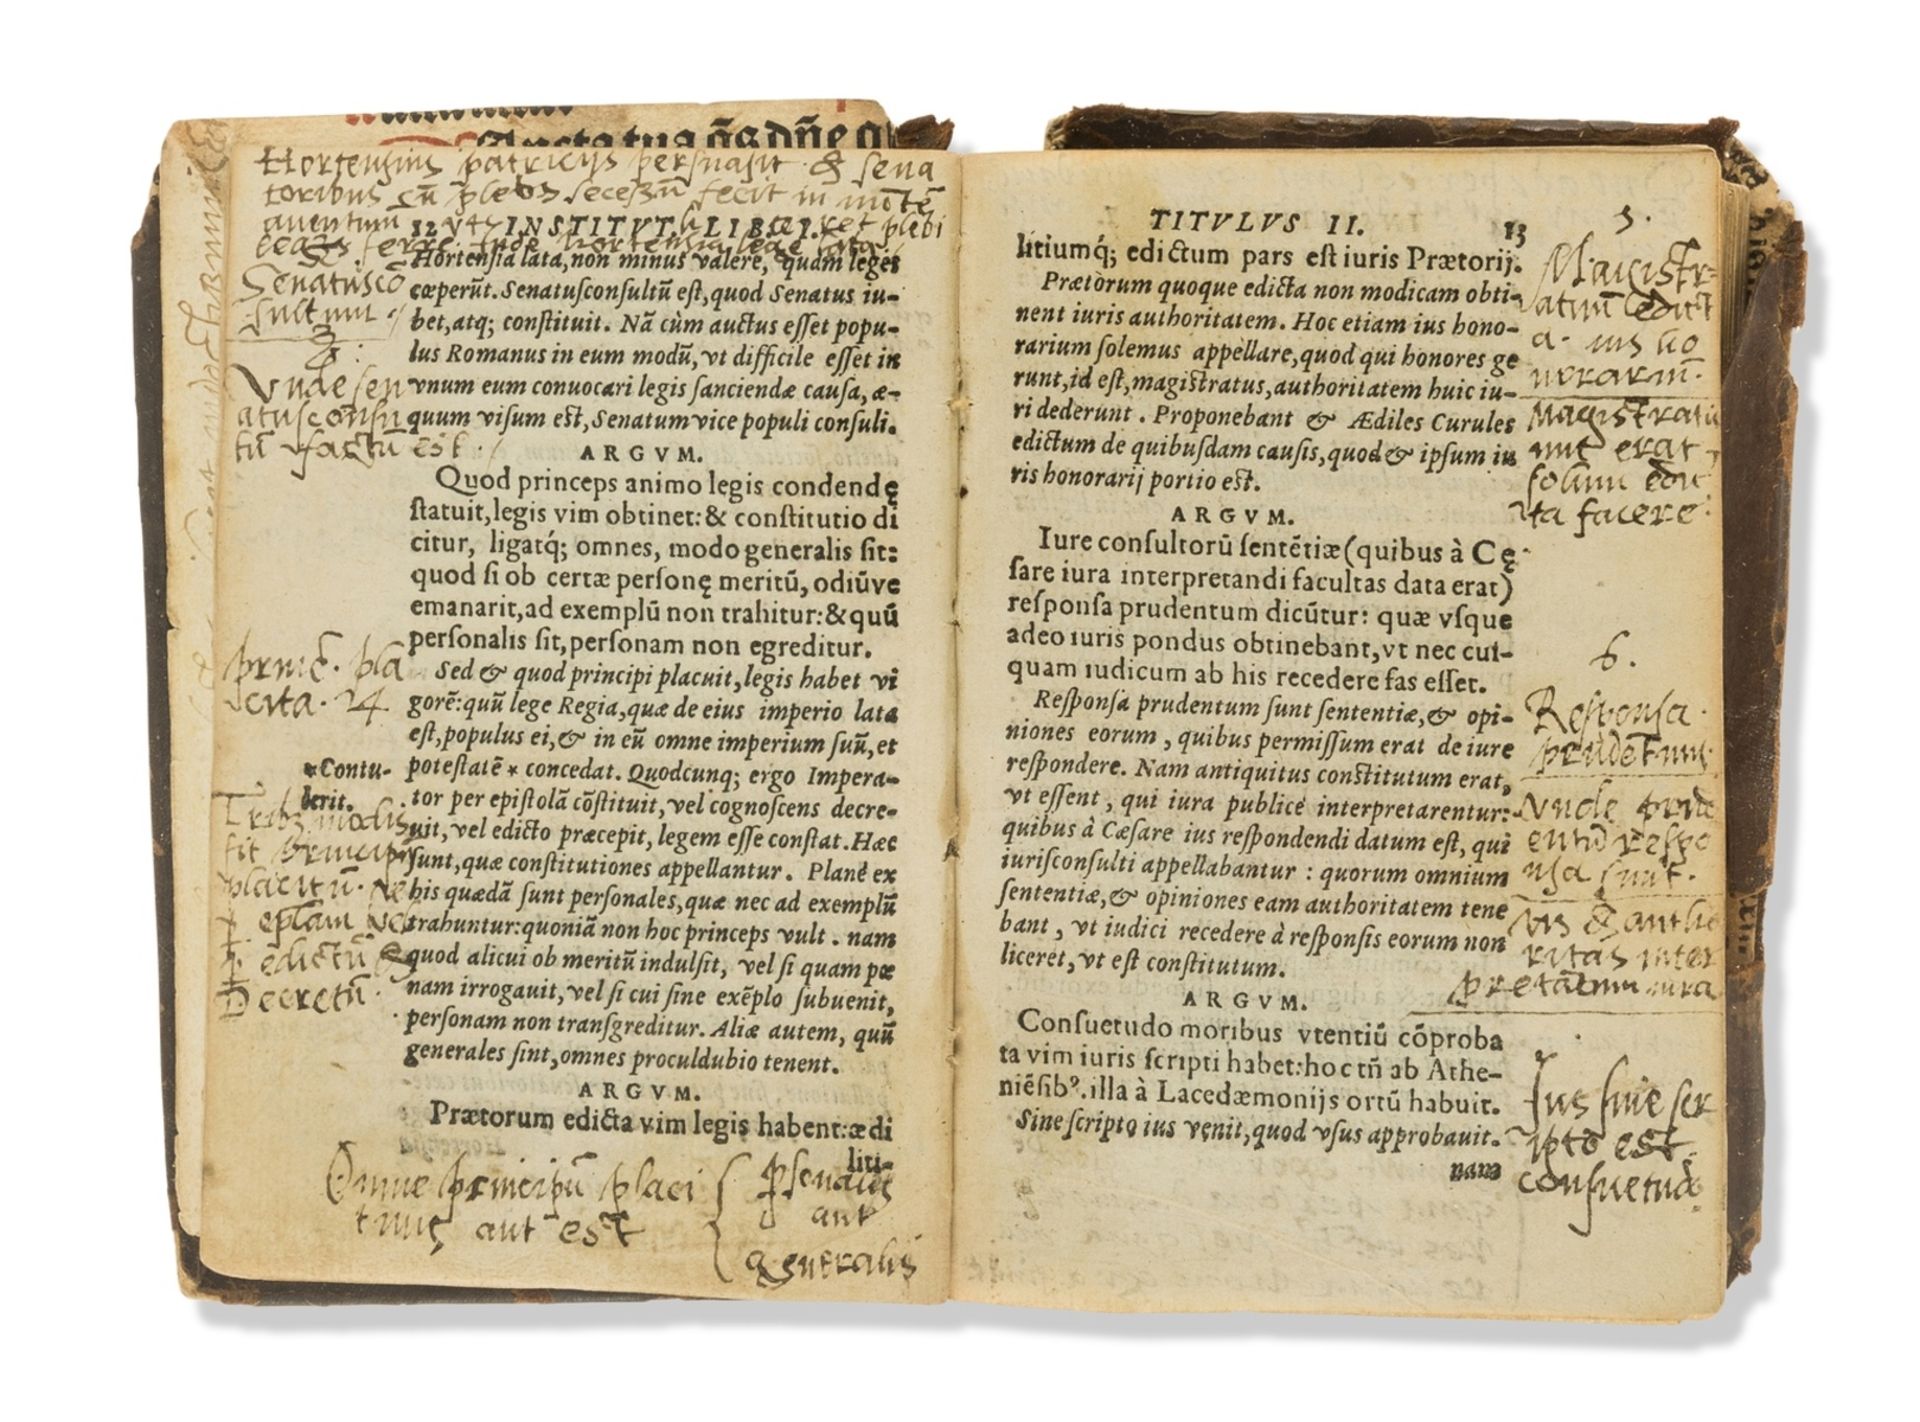 Auctatus
Hortensius patricijs persuasit & sena
toribus cũ plebs secessũ fecit in mõtẽ
auentinũ
12 INSTITVT. LIB. I.
Hortensia lata, non minus valere, quàm leges
Senatuscõ
sultum
cœperũt. Senatusconsultũ est, quod Senatus iu-
bet, atq; constituit. Nã cùm auctus esset popu-
lus Romanus in eum modũ, vt difficile esset in
Vnde sen
atusconsul
tũ factũ est.
vnum eum conuocari legis sanciendæ causa, æ-
quum visum est, Senatum vice populi consuli.
ARGVM.
Quod princeps animo legis condendę
statuit, legis vim obtinet: & constitutio di
citur, ligatq́; omnes, modo generalis sit:
quod si ob certæ personę meritũ, odiũve
emanarit, ad exemplũ non trahitur: & quũ
personalis sit, personam non egreditur.
princ. pla
cita. 24
Sed & quod principi placuit, legis habet vi
gorẽ: quũ lege Regia, quæ de eius imperio lata
est, populus ei, & in eũ omne imperium suũ, et
*Contu-
lerit.
potestatẽ * concedat. Quodcunq; ergo Impera-
tor per epistolã cõstituit, vel cognoscens decre-
uit, vel edicto præcepit, legem esse constat. Hæc
sunt, quæ constitutiones appellantur. Planè ex
his quædã sunt personales, quæ nec ad exemplũ
trahuntur: quoniã non hoc princeps vult. nam
quod alicui ob meritũ indulsit, vel si quam pœ
nam irrogauit, vel si cui sine exẽplo subuenit,
personam non transgreditur. Aliæ autem, quũ
generales sint, omnes proculdubio tenent.
Trib; modis
fit principis
placitũ.
eplam
edictũ
Decretũ.
ARGVM.
Prætorum edicta vim legis habent: ædi
liti-
Omne principũ placi
tum aut est
psonale
aut
generalis
TITVLVS II. 13
litiumq́; edictum pars est iuris Prætorij.
Prætorum quoque edicta non modicam obti-
nent iuris authoritatem. Hoc etiam ius hono-
rarium solemus appellare, quod qui honores ge
runt, id est, magistratus, authoritatem huic iu-
ri dederunt. Proponebant & Ædiles Curules
edictum de quibusdam causis, quod & ipsum iu
ris honorarij portio est.
5.
Magistr-
atũũ edict
a. ius ho
norariũ.
Magistratu
um erat
solum edic
ta facere.
ARGVM.
Iure consultorũ sentẽtiæ (quibus à Cę-
sare iura interpretandi facultas data erat)
responsa prudentum dicũtur: quæ vsque
adeo iuris pondus obtinebant, vt nec cui-
quam iudicum ab his recedere fas esset.
Responsa prudentum sunt sententiæ, & opi-
niones eorum, quibus permissum erat de iure
respondere. Nam antiquitus constitutum erat,
vt essent, qui iura publicè interpretarentur:
quibus à Cæsare ius respondendi datum est, qui
iurisconsulti appellabantur: quorum omnium
sententiæ, & opiniones eam authoritatem tene
bant, vt iudici recedere à responsis eorum non
liceret, vt est constitutum.
6.
Responsa
prudẽtum.
Vnde prud
entũ respo
nsa sunt.
Vis & autho
ritas inter
pretãtium iura
ARGVM.
Consuetudo moribus vtentiũ cõproba
ta vim iuris scripti habet: hoc tñ ab Athe-
niẽsibꝰ. illa à Lacedæmonijs ortũ habuit.
Sine scripto ius venit, quod vsus approbauit.
nam
Ius sine scr
ipto est
consuetudo.